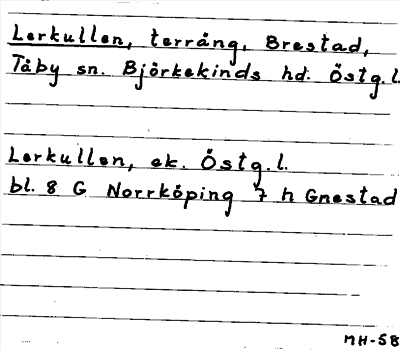 Lerkullen, terräng, Brestad,
Tåby sn. Björkekinds hd. Östg.l.
Lerkullen, ek. Östg.l.
bl. 8 G Norrköping 7 h Gnestad
MH-58